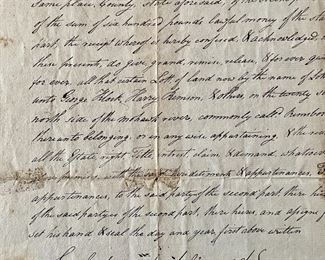 same place, County, State aforesaid, of the
of the sum of six hundred pounds lawful money of the
part, the receipt whereof is hereby confessed & acknowledged
these presents, do give, grand, remise, release, & for ever
for ever. all that certain Lott of land now by the name of
unto George Klock, Harry & others, in the twenty
north side of the mohawk rever, commonly called
thereunto belonging, or in any wise appartaining. & the
all the State, right, Title, intrest, claim & demand, whatsoever
with the hereditments & appartenances.
appartenances, to the said party of the second part, there
of the said partyes of the second part, there heirs, and
set his hand & seal the day and year, first above written